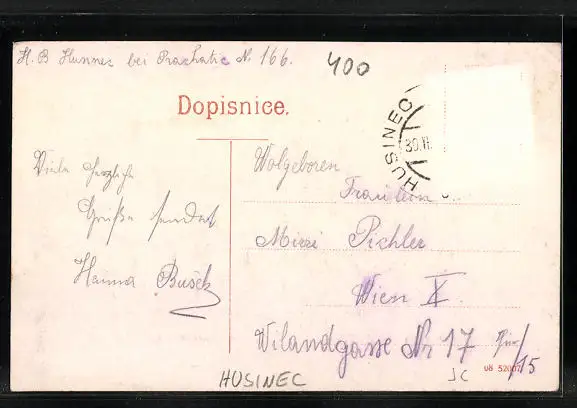 H. B Husinec bei Prachatic No 166.
400
Dopisnice.
HUSINEC
30.II.
Viele herzliche
Grüße sendet
Hanna Bušek
Wolgeboren
Fräulein
Mizzi Pichler
Wien X.
Wilandgasse Nr 17
/15
08 52007
HUSINEC
JC